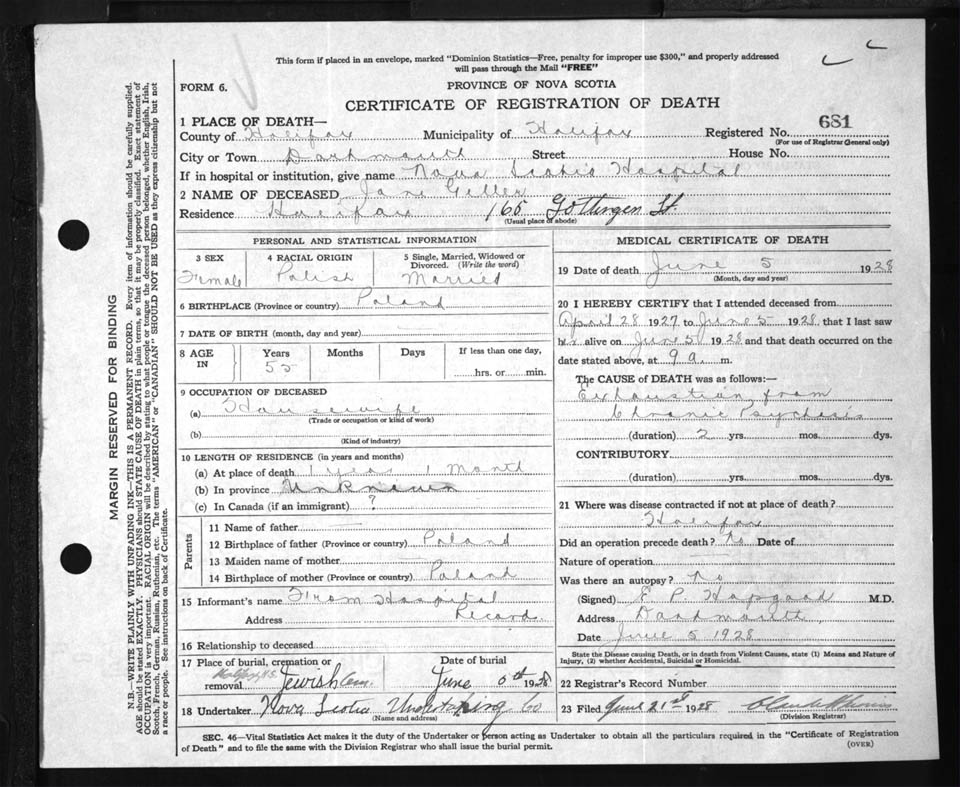 This form if placed in an envelope, marked "Dominion Statistics—Free, penalty for improper use $300," and properly addressed
will pass through the Mail "FREE"
FORM 6.
PROVINCE OF NOVA SCOTIA
CERTIFICATE OF REGISTRATION OF DEATH
1 PLACE OF DEATH—
County of Halifax Municipality of Halifax Registered No. 681
(For use of Registrar General only)
City or Town Dartmouth Street House No.
If in hospital or institution, give name Nova Scotia Hospital
2 NAME OF DECEASED Jane Geller
Residence Halifax 165 Gottingen St.
(Usual place of abode)
PERSONAL AND STATISTICAL INFORMATION
3 SEX 4 RACIAL ORIGIN 5 Single, Married, Widowed or
Divorced. (Write the word)
Female Polish Married
6 BIRTHPLACE (Province or country) Poland
7 DATE OF BIRTH (month, day and year)
8 AGE IN Years Months Days If less than one day,
55 hrs. or min.
9 OCCUPATION OF DECEASED
(a) Housewife
(Trade or occupation or kind of work)
(b)
(Kind of industry)
10 LENGTH OF RESIDENCE (in years and months)
(a) At place of death 1 year 1 month
(b) In province Unknown
(c) In Canada (if an immigrant) ?
Parents
11 Name of father
12 Birthplace of father (Province or country) Poland
13 Maiden name of mother
14 Birthplace of mother (Province or country) Poland
15 Informant's name From Hospital
Address Record.
16 Relationship to deceased
17 Place of burial, cremation or Date of burial
Halifax N.S.
removal Jewish Cem. June 6th 1928
18 Undertaker Nova Scotia Undertaking Co
(Name and address)
MEDICAL CERTIFICATE OF DEATH
19 Date of death June 5 1928
(Month, day and year)
20 I HEREBY CERTIFY that I attended deceased from
April 28 1927 to June 5 1928 that I last saw
her alive on June 5 1928 and that death occurred on the
date stated above, at 9 a m.
The CAUSE OF DEATH was as follows:—
Exhaustion from
Chronic Psychosis
(duration) 2 yrs. mos. dys.
CONTRIBUTORY
(duration) yrs. mos. dys.
21 Where was disease contracted if not at place of death?
Halifax
Did an operation precede death? No Date of
Nature of operation
Was there an autopsy? No
(Signed) E P Hapgood M.D.
Address Dartmouth
Date June 5 1928
State the Disease causing Death, or in death from Violent Causes, state (1) Means and Nature of
Injury, (2) whether Accidental, Suicidal or Homicidal.
22 Registrar's Record Number
23 Filed June 21st 1928
(Division Registrar)
SEC. 46—Vital Statistics Act makes it the duty of the Undertaker or person acting as Undertaker to obtain all the particulars required in the "Certificate of Registration
of Death" and to file the same with the Division Registrar who shall issue the burial permit.
(OVER)
MARGIN RESERVED FOR BINDING
N.B.—WRITE PLAINLY WITH UNFADING INK—THIS IS A PERMANENT RECORD. Every item of information should be carefully supplied.
AGE should be stated EXACTLY. PHYSICIANS should STATE CAUSE OF DEATH in plain terms, so that it may be properly classified. Exact statement of
OCCUPATION is very important. RACIAL ORIGIN will be described by stating to what people or tongue the deceased person belonged, whether English, Irish,
Scotch, French, German, Russian, Ruthenian, etc. The terms "AMERICAN" or "CANADIAN" SHOULD NOT BE USED as they express citizenship but not
a race or people. See instructions on back of Certificate.